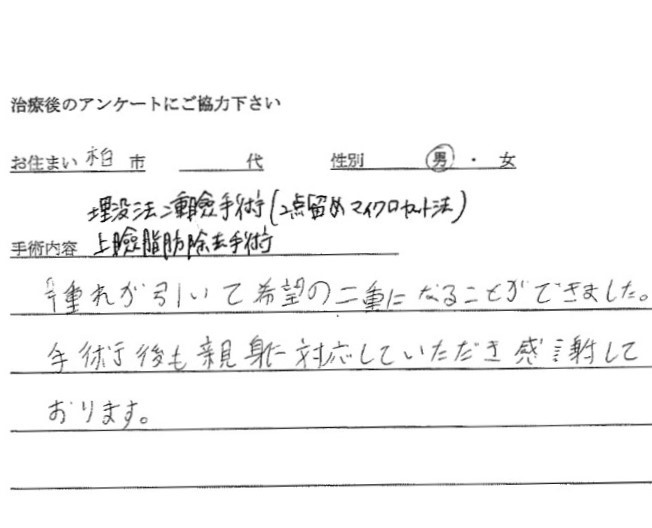 治療後のアンケートにご協力下さい
お住まい 柏 市 代 性別 男 ・ 女
埋没法二重瞼手術(2点留めマイクロカット法)
手術内容 上瞼脂肪除去手術
腫れが引いて希望の二重になることができました。
手術後も親身に対応していただき感謝して
おります。